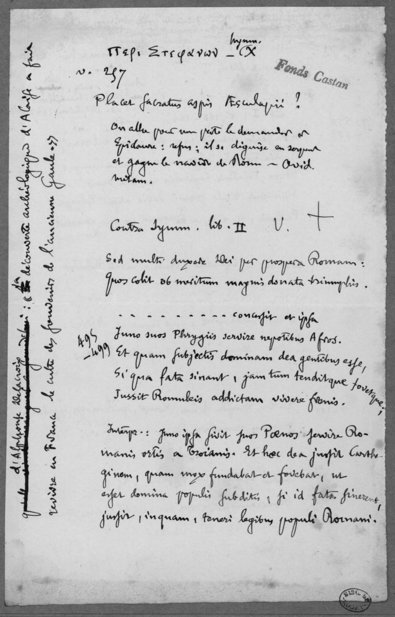 Περι Στεφανων – hymn. X
Fonds Castan
v. 257
Placet sacratus aspis Aesculapii ?
On alla pour un peste le demander à
Epidaure : refus ; il se déguise en serpent
et gagne le navire de Rome – Ovid.
metam.
Contra Symm. lib. II V. +
Sed multi duxere Dei per prospera Romam :
Quos colit ob meritum magnis donata triumphis.
. . . . . . . . . concessit et ipsa
495
-499
Juno suos Phrygiis servire nepotibus Afros.
Et quam subjectis dominam dea gentibus esse,
Si qua fata sinant, jam tum tenditque fovetque,
Jussit Romuleis addictam vivere frenis.
Interpr. : Juno ipsa sivit suos Poenos servire Ro-
manis ortis a Troianis. Et hoc dea jussit Cartha-
ginem, quam mox fundabat et fovebat, ut
esset domina populis subditis, si id fata sinerent,
jussit, inquam, teneri legibus populi Romani.
d'Alphonse Delacroix : la découverte archéologique d'Alaise a fait
revivre en France le culte des souvenirs de l'ancienne Gaule »